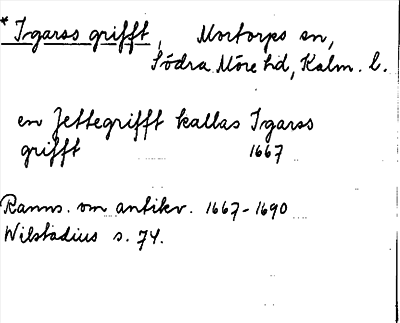 * Igarss grifft, Mortorps sn,
Södra Möre hd, Kalm. l.
en Jettegrifft kallas Igarss
grifft 1667
Ranns. om antikv. 1667-1690
Wilstadius s. 74.